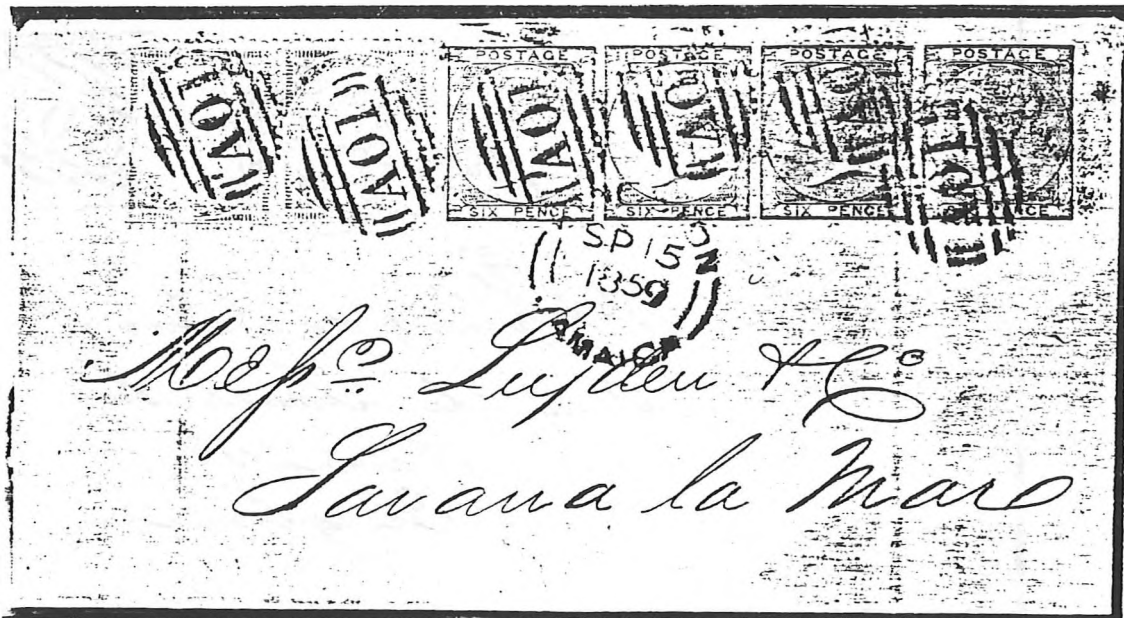 POSTAGE POSTAGE POSTAGE POSTAGE
A01 A01 A01 A01 A01 A01
SIX PENCE SIX PENCE SIX PENCE
SP 15
1859
JAMAICA
Messrs & Co
Savana la Mar